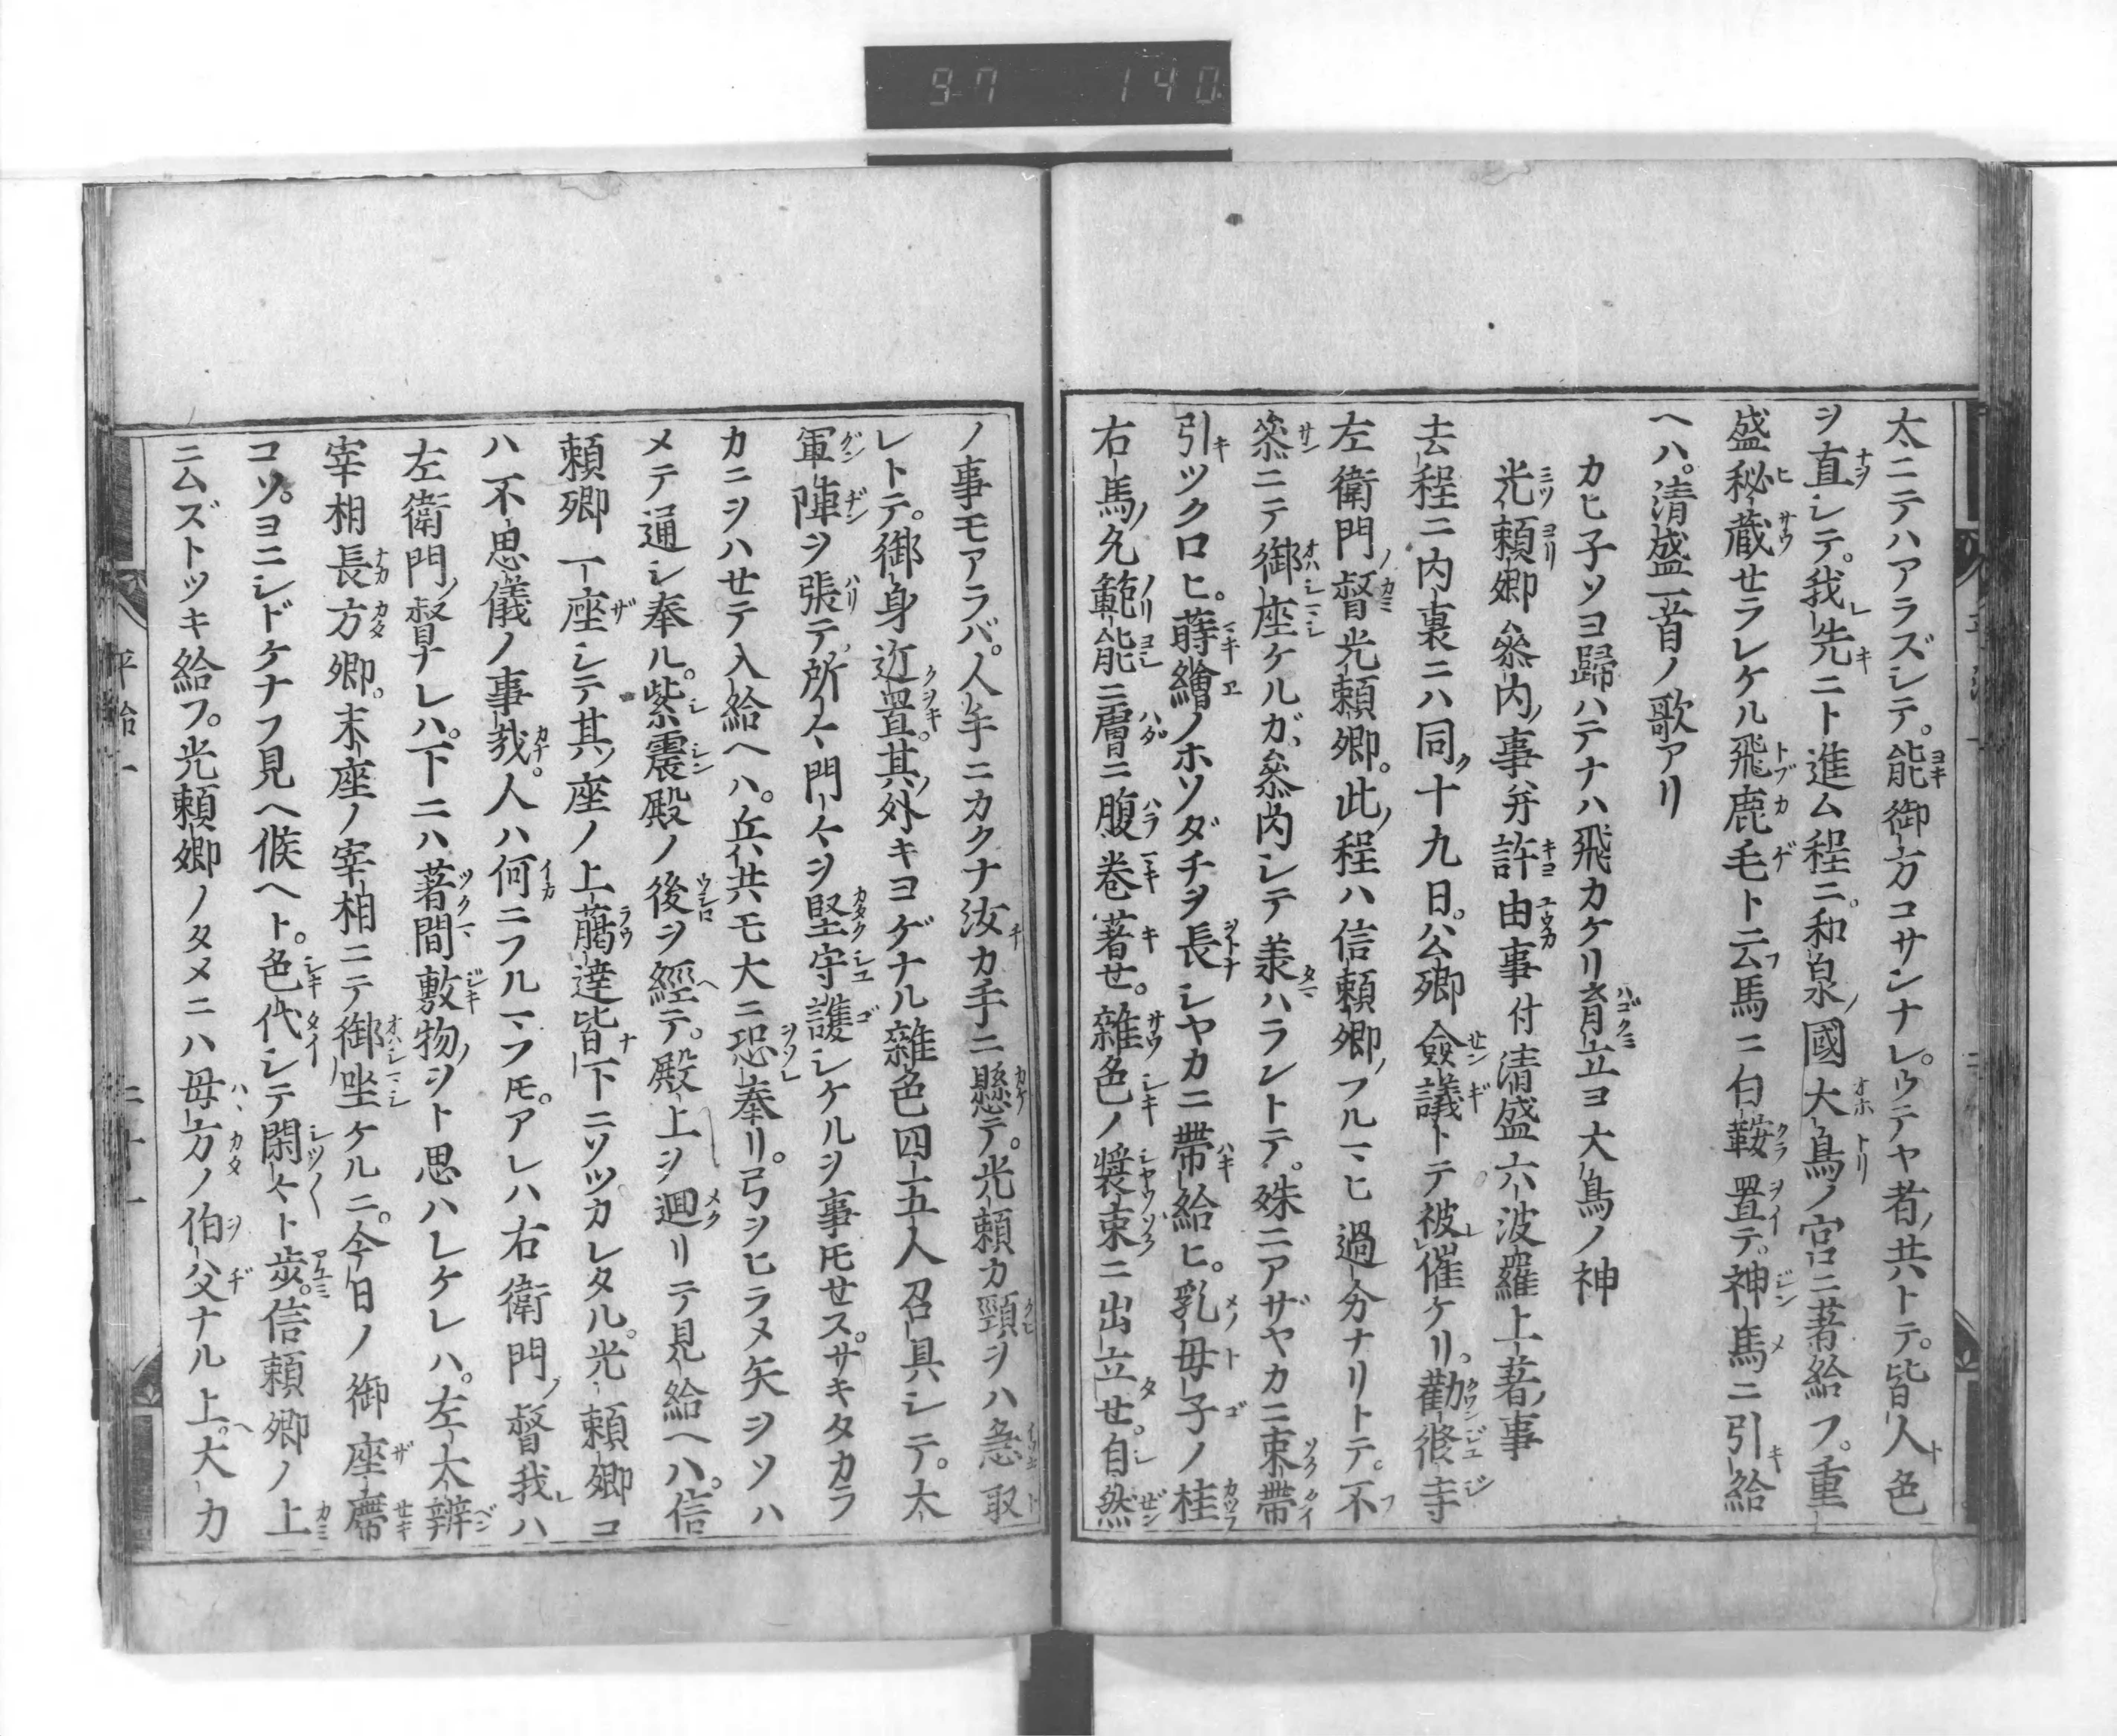 太ニテハアラズシテ。能御方コサンナレ。ウテヤ者共トテ。皆人色
ヲ直シテ。我先ニト進ム程ニ。和泉國大鳥ノ宮ニ著給フ。重
盛秘蔵セラレケル飛鹿毛ト云馬ニ白鞍置テ。神馬ニ引給
ヘハ。清盛一首ノ歌アリ
カヒ子ソヨ歸ハテナハ飛カケリ育立ヨ大鳥ノ神
光頼卿參内ノ事并許由事付清盛六波羅上著ノ事
去程ニ内裏ニハ同十九日。公卿僉議トテ被催ケリ。勸修寺
左衛門督光頼卿。此程ハ信頼卿ノフルマヒ過分ナリトテ。不
參ニテ御座ケルガ、參内シテ羕ハラントテ。殊ニアザヤカニ束帶
引ツクロヒ。蒔繪ノホソダチヲ長シヤカニ帶給ヒ。乳母子ノ桂
右馬允範能ニ膚ニ腹巻著せ。雜色ノ裝束ニ出立せ。自然
ノ事モアラバ。人手ニカクナ汝カ手ニ懸テ。光頼カ頸ヲハ急取
レトテ。御身近置。其外キヨゲナル雜色四五人召具シテ。太
軍陣ヲ張テ。所々門々ヲ堅守護シケルヲ事トモせス。サキタカラ
カニヲハせテ入給ヘハ。兵共モ大ニ恐奉リ。弓ヲヒラメ矢ヲソハ
メテ通シ奉ル。紫震殿ノ後ヲ經テ。殿上ヲ廻リテ見給ヘハ。信
頼卿一座シテ其座ノ上﨟達皆下ニソツカレタル。光頼卿コ
ハ不思儀ノ事哉。人ハ何ニフルマフトモ。アレハ右衛門督我ハ
左衛門督ナレハ。下ニハ著間敷物ヲト思ハレケレハ。左大辨
宰相長方卿。末座ノ宰相ニテ御坐ケルニ。今日ノ御座席
コソ。ヨニシドケナフ見ヘ候ヘト。色代シテ閑々ト歩。信頼卿ノ上
ニムズトツキ給フ。光頼卿ノタメニハ母方ノ伯父ナル上。大力
平治一
二十一
97 140